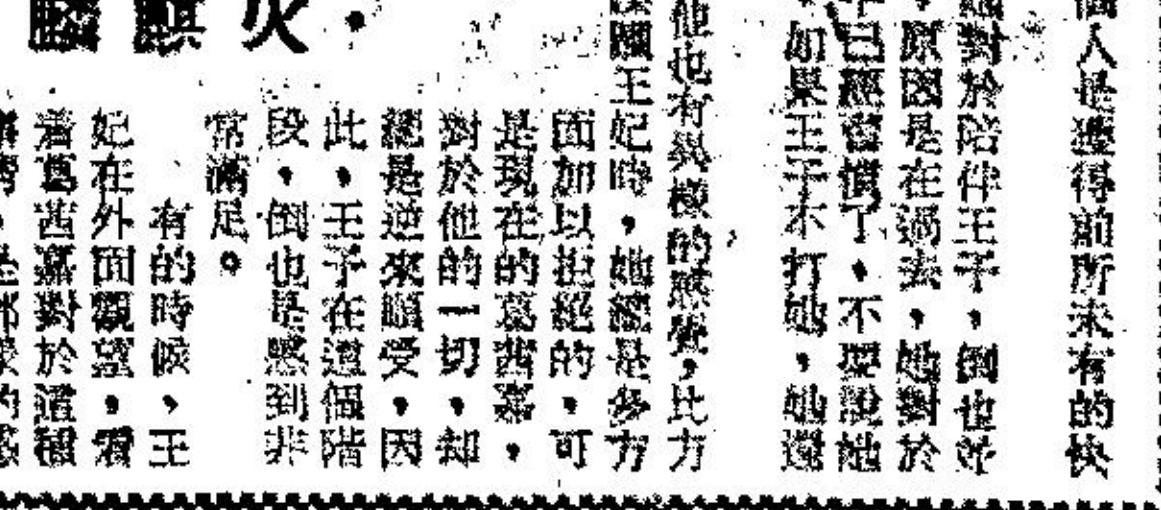 個人是獲得前所未有的快
她對於陪伴王子，倒也並
，原因是在過去，她對於
已經習慣了，不要說她
，如果王子不打她，她還
他也有異樣的感覺，比方
國王妃時，她總是多方
面加以拒絕的，可
是現在的葛茜嘉，
對於他的一切，却
總是逆來順受，因
此，王子在這個階
段，倒也是感到非
常滿足。
有的時候，王
妃在外面觀望，看
着葛茜嘉對於這種
火麒麟